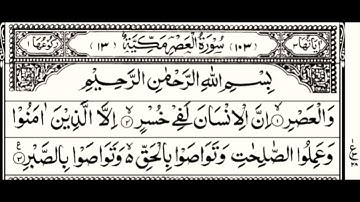 اٰيَاتُهَا ٣ (١٠٣) سُوْرَةُ الْعَصْرِ مَكِّيَّةٌ (١٣) رُكُوْعُهَا ١
بِسْمِ اللّٰهِ الرَّحْمٰنِ الرَّحِيْمِ
وَالْعَصْرِ ۙ﴿١﴾ اِنَّ الْاِنْسَانَ لَفِیْ خُسْرٍ ۙ﴿٢﴾ اِلَّا الَّذِيْنَ اٰمَنُوْا
وَعَمِلُوا الصّٰلِحٰتِ وَتَوَاصَوْا بِالْحَقِّ ۙ وَتَوَاصَوْا بِالصَّبْرِ ﴿٣﴾